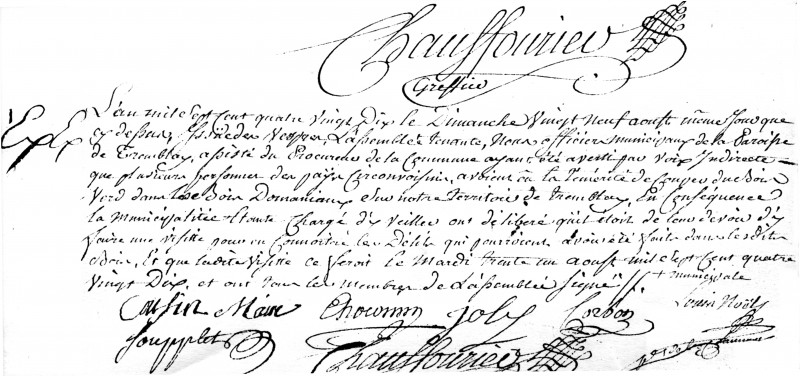 Chauffourier
Greffier
L'an mil sept cent quatre vingt Dix le Dimanche vingt neuf aoust même jour que
cy dessus, issüe des Vespres, L'assemblée tenante, Nous officiers municipaux de la Paroisse
de Tremblay, assisté du Procureur de la Commune ayant été averti par voix Indirecte
que plusieurs personnes des pays Circonvoisins, avoient eu la Témérité de Couper du Bois
Verd dans les Bois Domaniaux Sur notre Territoire de tremblay, En Conséquence
la Municipalitée étante Chargé d'y Veiller ont délibéré qu'il étoit de leur devoir d'y
faire une visitte pour en Connoitre les Délits qui pourroient avoir été faits dans lesdits
Bois, Et que ladite visitte ce Seroit le Mardi trente un aoust mil sept cent quatre
vingt Dix, et ont tous les Membres de L'assemblée Signé
+ municipale
Cousin Maire Joly Corbon Louis Noël
Soupplet Chauffourier